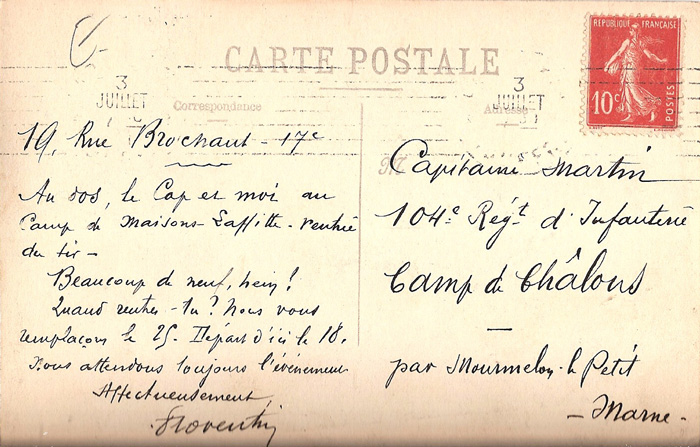 CARTE POSTALE
RÉPUBLIQUE FRANÇAISE
10c
POSTES
3
JUILLET
3
JUILLET
Correspondance
Adresse
M
19, Rue Brochant - 17e
Au dos, le Cap et moi au
Camp de Maisons-Laffitte - rentrée
du tir -
Beaucoup de neuf, hein!
Quand rentres-tu? Nous vous
remplaçons le 25. Départ d'ici le 18.
Nous attendons toujours l'événement
Affectueusement,
Florentin
Capitaine Martin
104e Régt d'Infanterie
Camp de Châlons
par Mourmelon-le Petit
- Marne -